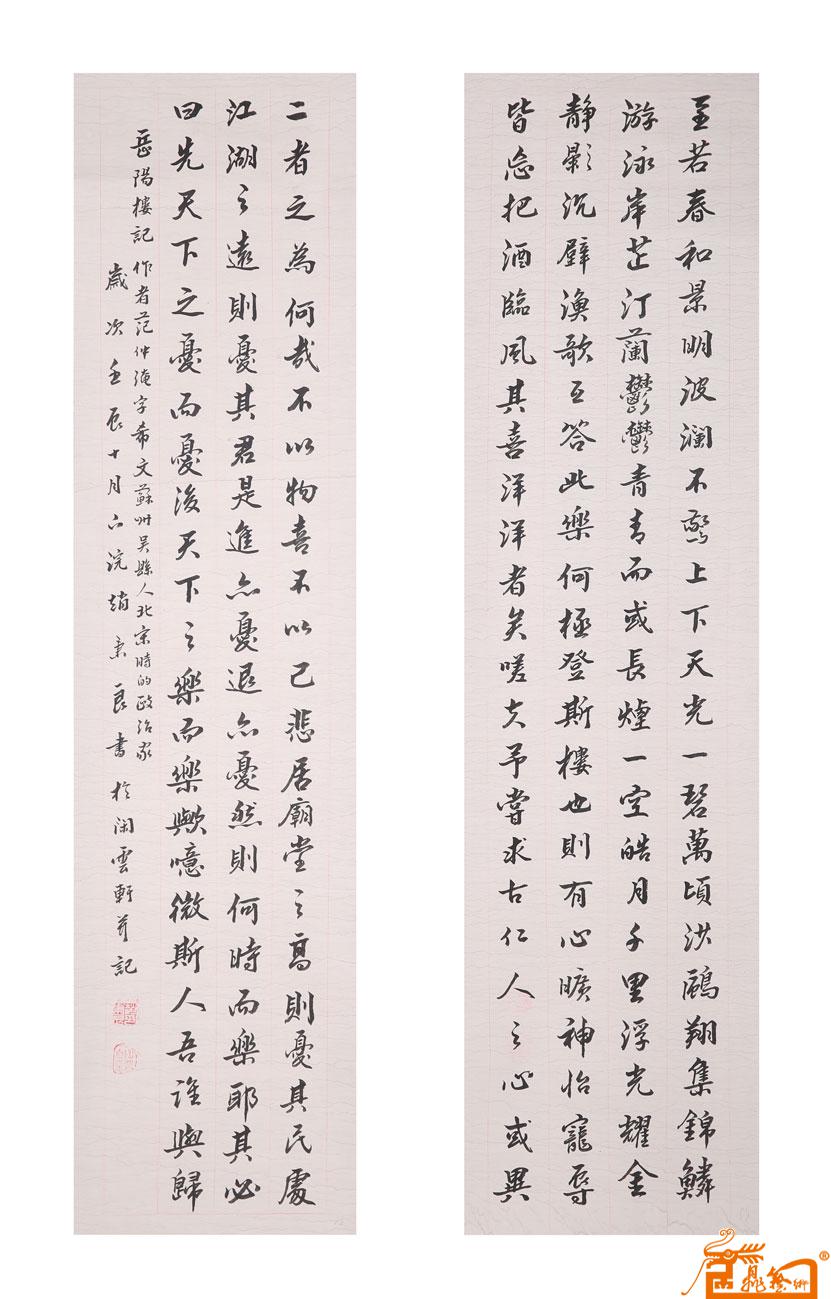 至若春和景明波澜不驚上下天光一碧萬頃洪鷗翔集錦鱗
游泳岸芷汀蘭鬱鬱青青而或長煙一空皓月千里浮光耀金
靜影沉壁漁歌互答此樂何極登斯樓也則有心曠神怡寵辱
皆忘把酒臨風其喜洋洋者矣嗟夫予嘗求古仁人之心或異
二者之為何哉不以物喜不以己悲居廟堂之高則憂其民處
江湖之遠則憂其君是進亦憂退亦憂然則何時而樂耶其必
曰先天下之憂而憂後天下之樂而樂歟噫微斯人吾誰與歸
岳陽樓記作者范仲淹字希文蘇州吴縣人北宋時的政治家
歲次壬辰十月六浣趙秉良書於闲雲軒并記